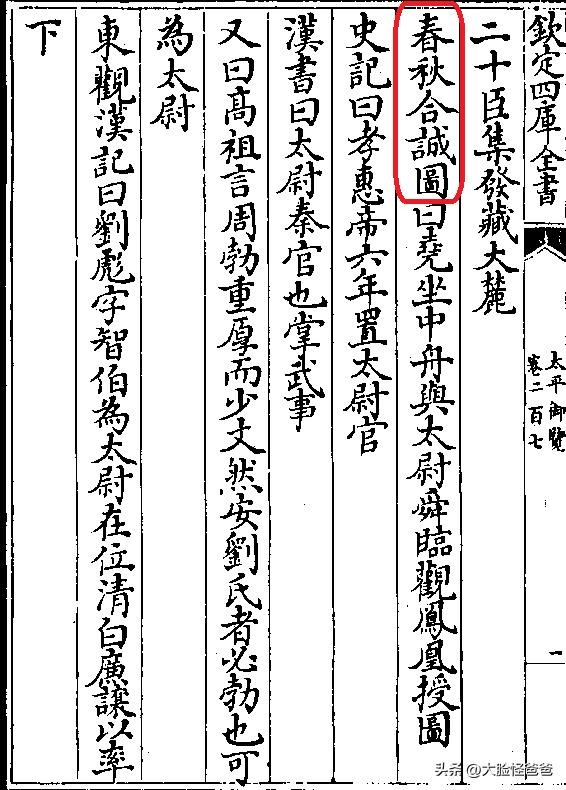 欽定四庫全書
太平御覽
卷二百七
一
二十臣集發藏大麓
春秋合誠圖曰堯坐中舟與太尉舜臨觀鳳凰授圖
史記曰孝惠帝六年置太尉官
漢書曰太尉秦官也掌武事
又曰高祖言周勃重厚而少文然安劉氏者必勃也可
為太尉
東觀漢記曰劉彪字智伯為太尉在位清白廣讓以率
下
头条 @大脸怪爸爸